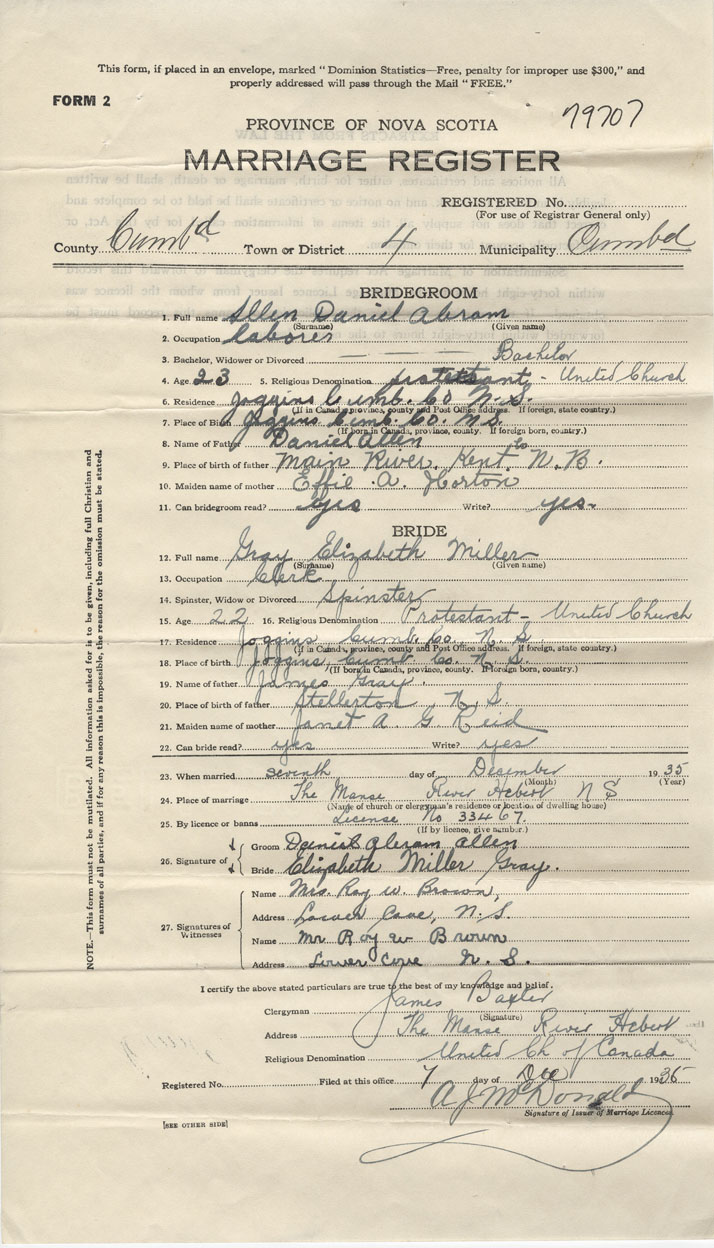 This form, if placed in an envelope, marked "Dominion Statistics—Free, penalty for improper use $300," and
properly addressed will pass through the Mail "FREE."
FORM 2
79707
PROVINCE OF NOVA SCOTIA
MARRIAGE REGISTER
REGISTERED No.
(For use of Registrar General only)
County Cumb'd Town or District 4 Municipality Cumbd
BRIDEGROOM
1. Full name Allen Daniel Abram
(Surname) (Given name)
2. Occupation laborer
3. Bachelor, Widower or Divorced Bachelor
4. Age 23 5. Religious Denomination - United Church
6. Residence Joggins Cumb. Co N.S.
(If in Canada, province, county and Post Office address. If foreign, state country.)
7. Place of Birth Joggins Cumb. Co N.S.
(If born in Canada, province, county. If foreign born, country.)
8. Name of Father Daniel Allen
9. Place of birth of father Main River, Kent Co N.B.
10. Maiden name of mother Effie A. Horton
11. Can bridegroom read? yes Write? yes
BRIDE
12. Full name Gray Elizabeth Miller
(Surname) (Given name)
13. Occupation Clerk
14. Spinster, Widow or Divorced Spinster
15. Age 22 16. Religious Denomination Protestant - United Church
17. Residence Joggins Cumb. Co. N. S.
(If in Canada, province, county and Post Office address. If foreign, state country.)
18. Place of birth Joggins, Cumb Co. N. S.
(If born in Canada, province, county. If foreign born, country.)
19. Name of father James Gray.
20. Place of birth of father Stellerton, N. S.
21. Maiden name of mother Janet A G Reid
22. Can bride read? yes Write? yes
23. When married seventh day of December 1935
(Month) (Year)
24. Place of marriage The Manse River Hebert N S
(Name of church or clergyman's residence or location of dwelling house)
25. By licence or banns License No 33467.
(If by licence, give number.)
26. Signature of
Groom Daniel Abram Allen
Bride Elizabeth Miller Gray.
27. Signatures of Witnesses
Name Mrs. Roy W. Brown,
Address Lower Cove, N. S.
Name Mr Roy W Brown
Address Lower Cove N. S.
I certify the above stated particulars are true to the best of my knowledge and belief.
Clergyman James Baxter
(Signature)
Address The Manse River Hebert
Religious Denomination United Ch of Canada
Registered No. Filed at this office 7 day of Dec 1935
A J McDonald
Signature of Issuer of Marriage Licences
[SEE OTHER SIDE]
NOTE.—This form must not be mutilated. All information asked for is to be given, including full Christian and
surnames of all parties, and if for any reason this is impossible, the reason for the omission must be stated.